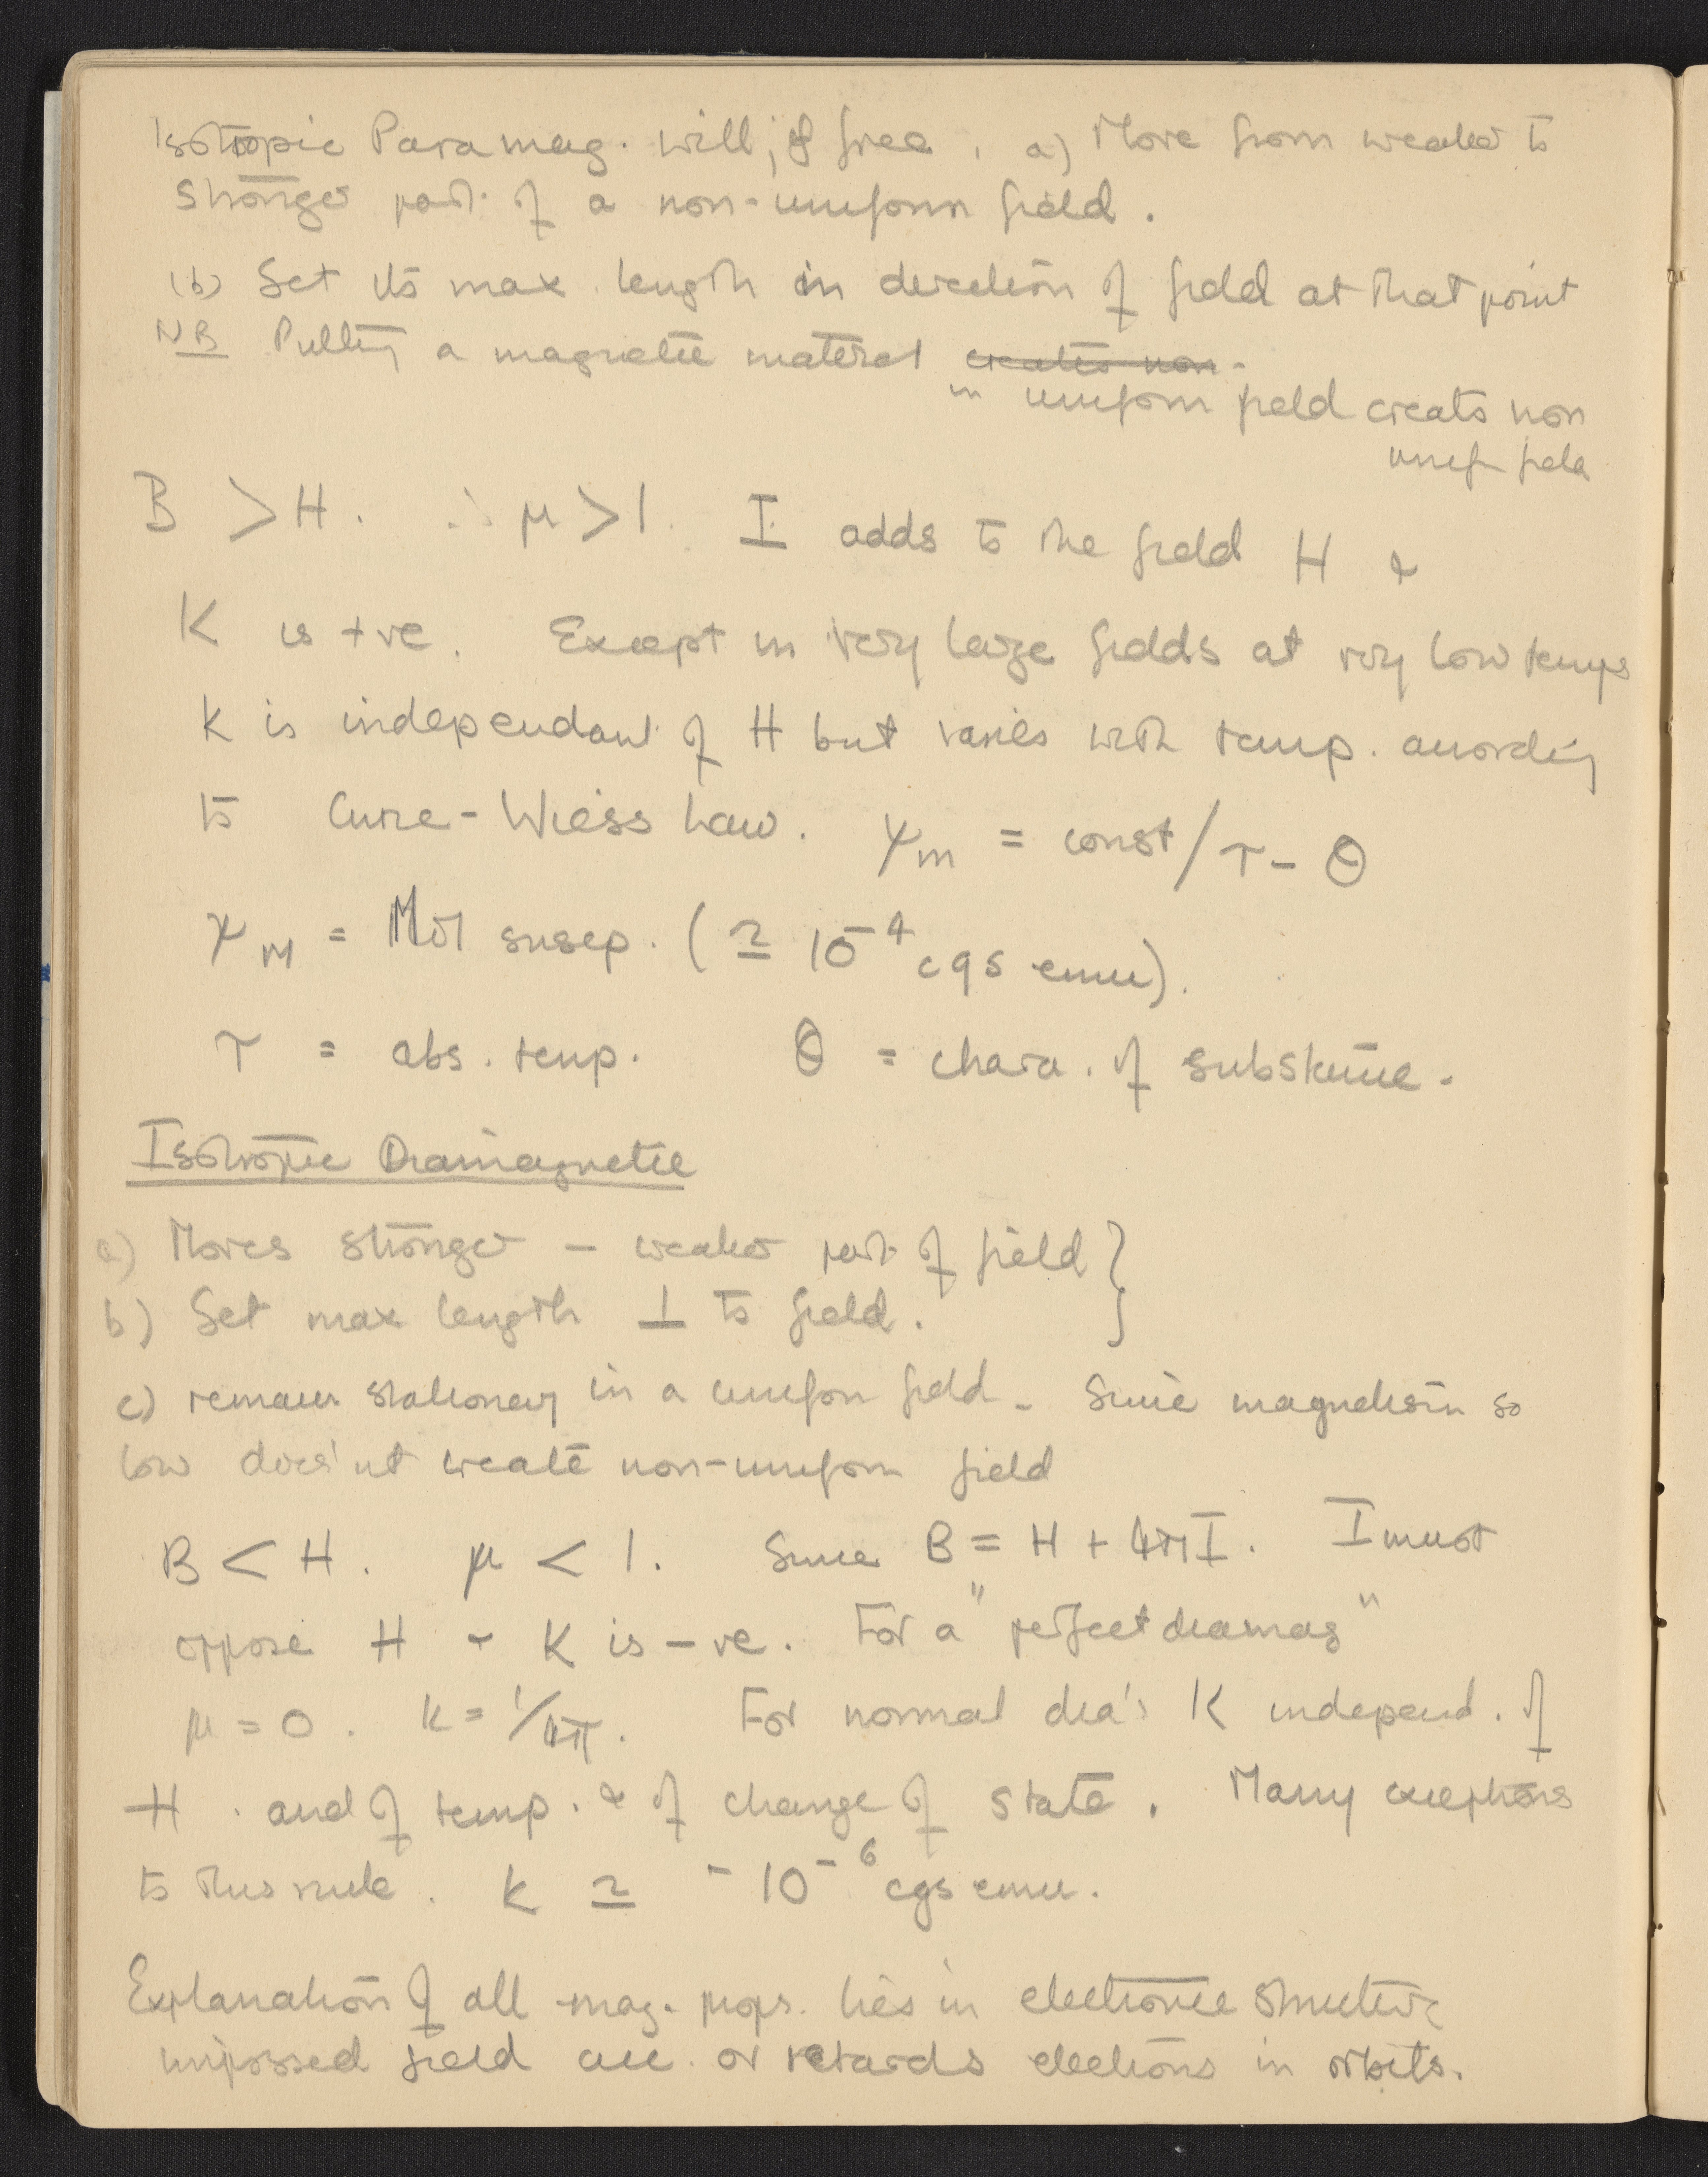 Isotropic Paramag. will, if free, a) Move from weaker to
stronger part of a non-uniform field.
(b) Set its max length in direction of field at that point
NB Putting a magnetic material creates non-
in uniform field creats non
unif field
B > H. ∴ μ > 1. I adds to the field H &
K is +ve. Except in very large fields at very low temps
K is independant of H but varies with temp. according
to Curie-Wiess Law. χm = const/T - θ
χM = Mol susep. (≃ 10⁻⁴ cgs emu).
T = abs. temp. θ = chara. of substance.
Isotropic Diamagnetic
a) Moves stronger - weaker part of field }
b) Set max length ⊥ to field.
c) remain stationary in a uniform field. Since magnetism so
low does'nt create non-uniform field
B < H. μ < 1. Since B = H + 4πI. I must
oppose H & K is -ve. For a "perfect diamag"
μ = 0. k = 1/4π. For normal dia's K independ. of
H. and of temp. & of change of state. Many exceptions
to this rule. K ≃ -10⁻⁶ cgs emu.
Explanation of all mag. props. lies in electronic structure
impossed field acc. or retards electrons in orbits.